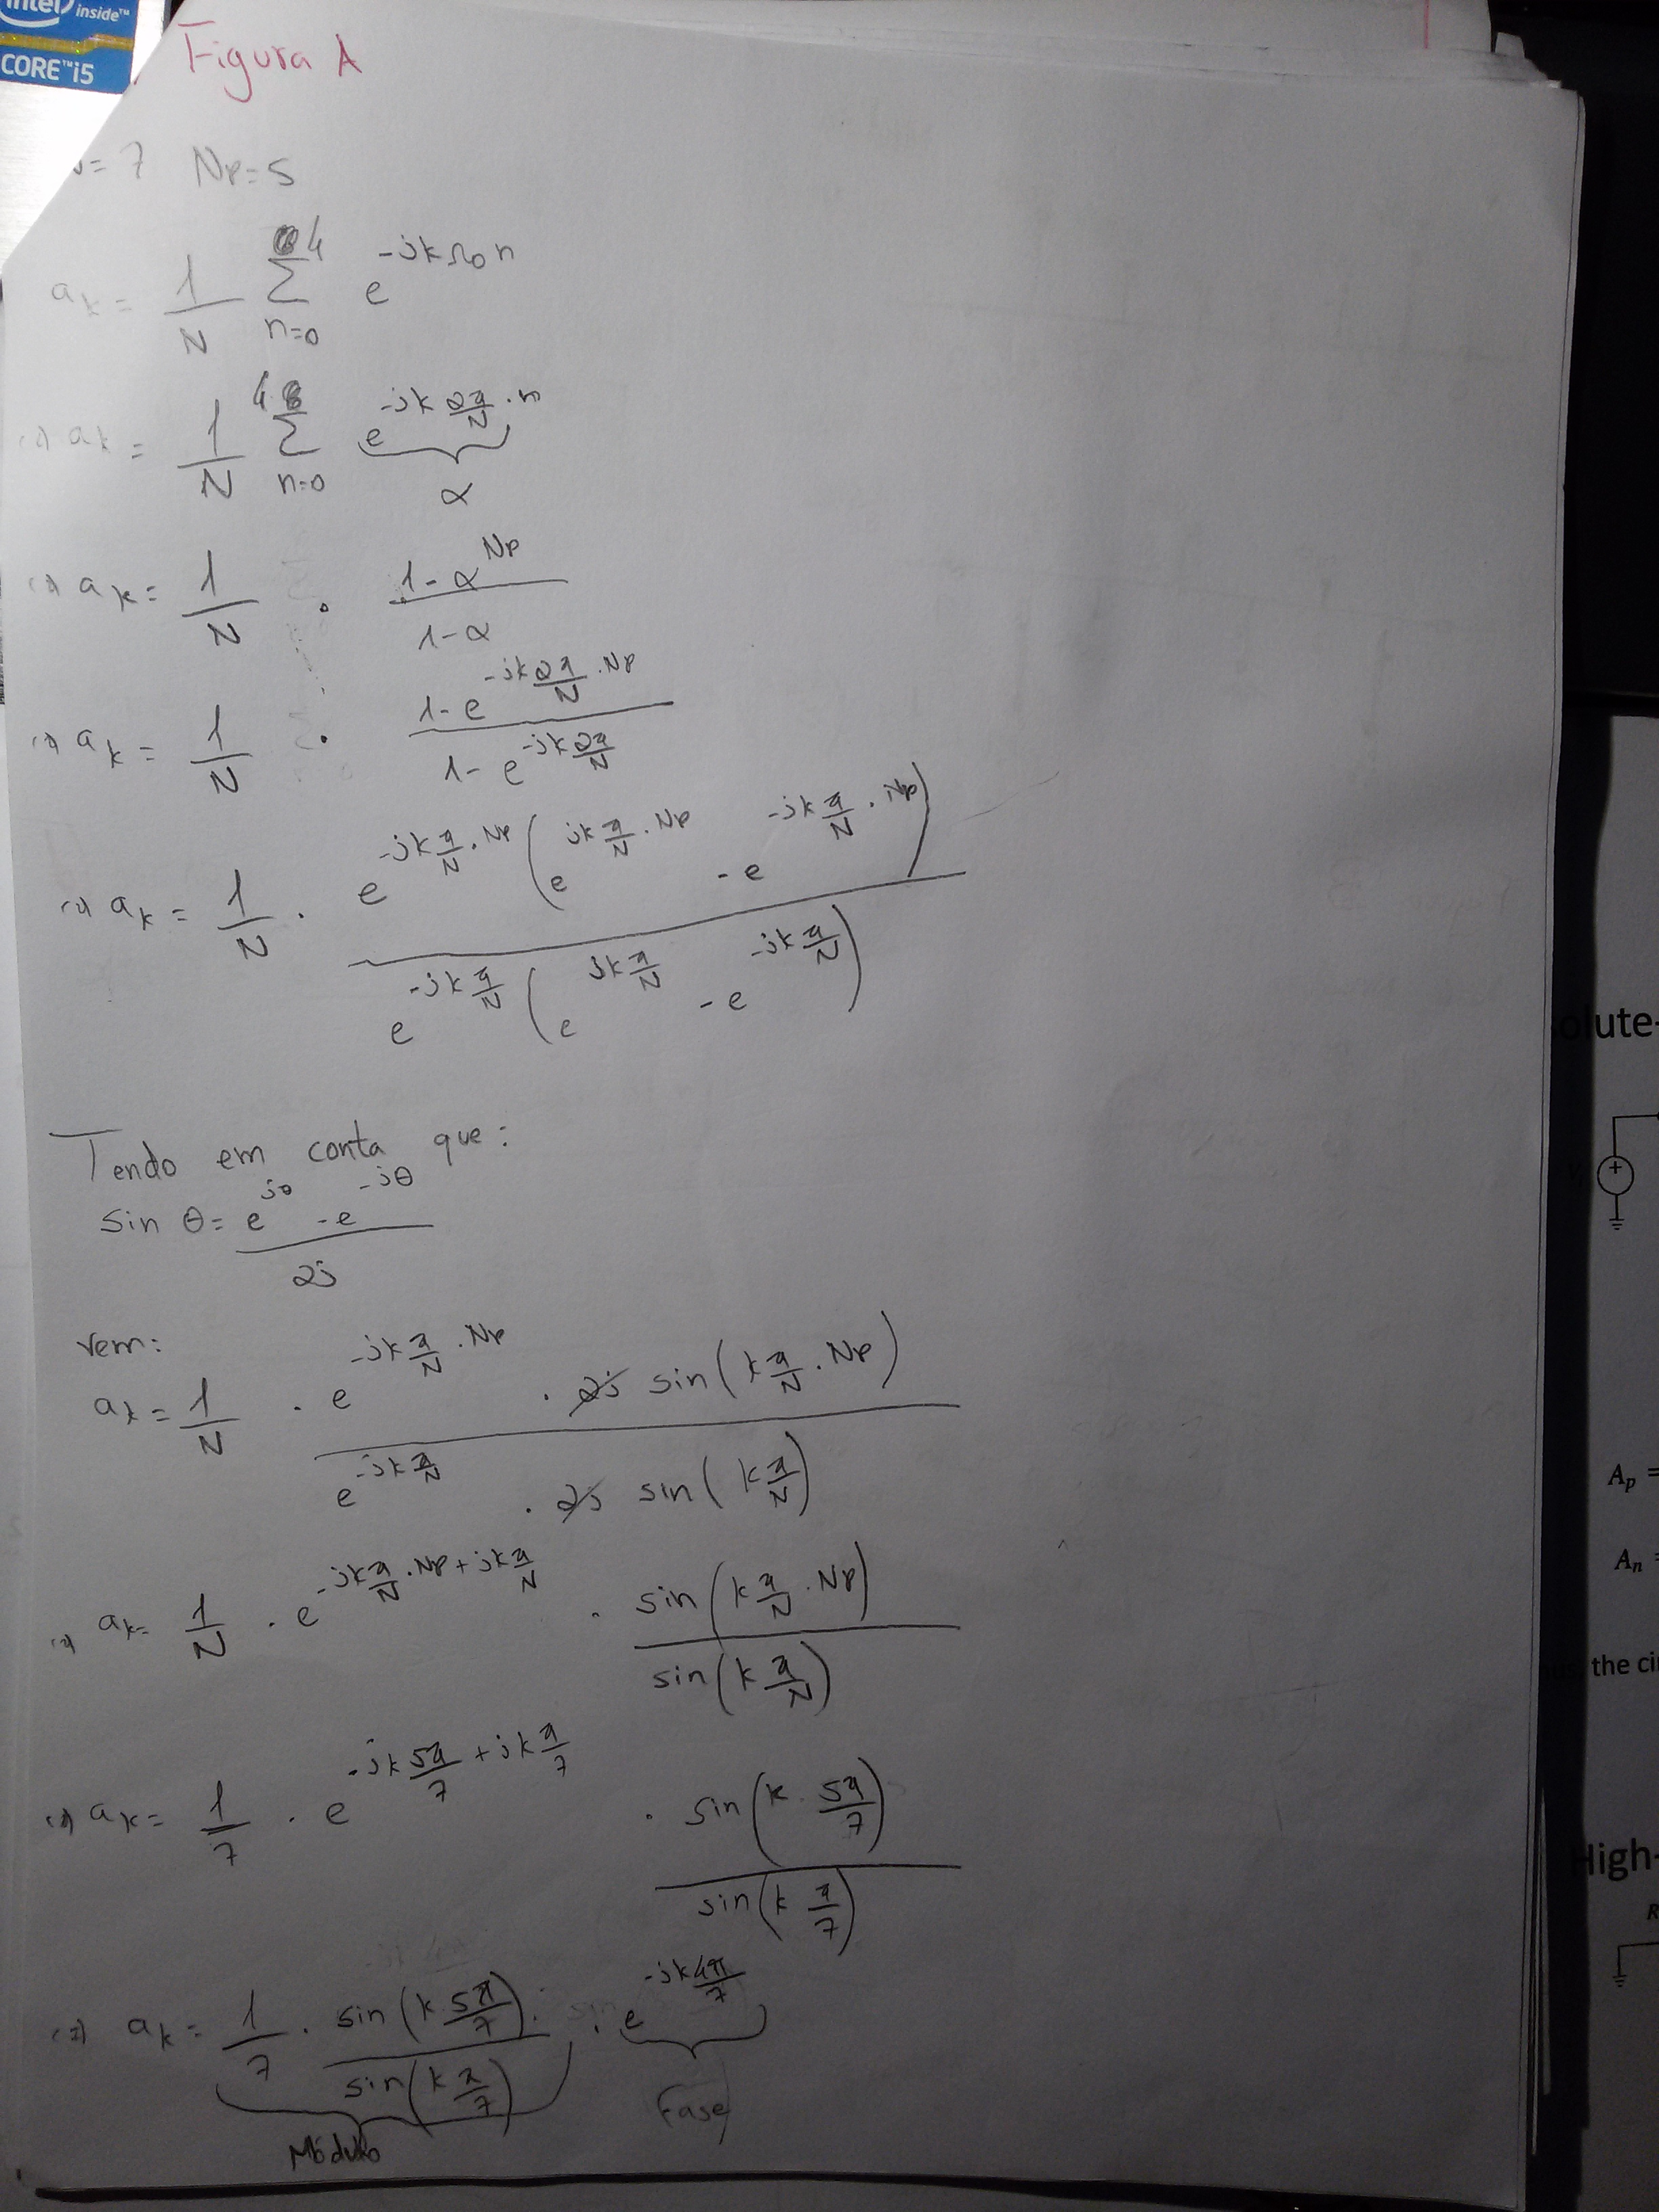 intel inside™
CORE™ i5
Figura A
N=7 Np=5
a_k = 1/N Σ_{n=0}^{4} e^{-jkΩ₀n}
(=) a_k = 1/N Σ_{n=0}^{4} e^{-jk 2π/N · n}
α
(=) a_k = 1/N · (1-α^{Np})/(1-α)
(=) a_k = 1/N · (1-e^{-jk 2π/N · Np})/(1-e^{-jk 2π/N})
(=) a_k = 1/N · e^{-jk π/N · Np}(e^{jk π/N · Np} - e^{-jk π/N · Np}) / e^{-jk π/N}(e^{jk π/N} - e^{-jk π/N})
Tendo em conta que:
sin θ = (e^{jθ} - e^{-jθ})/2j
vem:
a_k = 1/N · e^{-jk π/N · Np} · 2j sin(k π/N · Np) / e^{-jk π/N} · 2j sin(k π/N)
(=) a_k = 1/N · e^{-jk π/N · Np + jk π/N} · sin(k π/N · Np)/sin(k π/N)
(=) a_k = 1/7 · e^{-jk 5π/7 + jk π/7} · sin(k · 5π/7)/sin(k π/7)
(=) a_k = 1/7 · sin(k 5π/7)/sin(k π/7) · e^{-jk 4π/7}
Módulo
Fase
olute-
+
A_p =
A_n =
the ci
High-
R